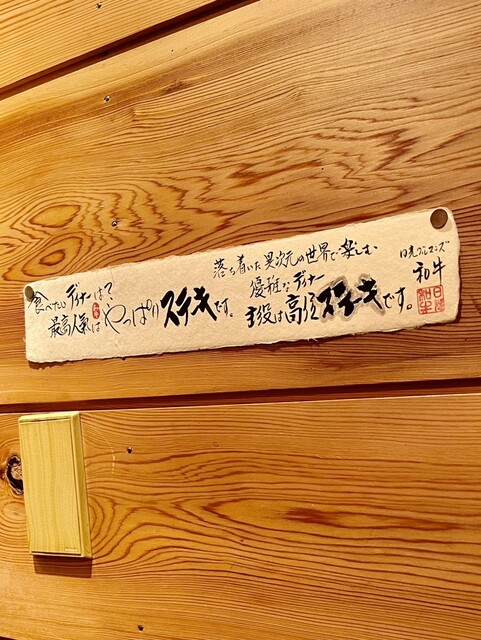 食べたいディナーは?
最高人気は やっぱりステキです。
落ち着いた異次元の世界で楽しむ
優雅なディナー
主役は高級ステーキです。
日光
和牛